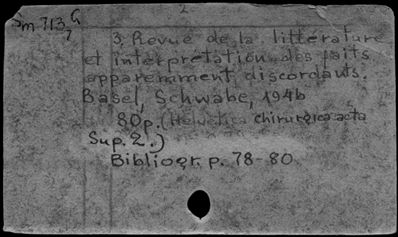 2
Sm 713, G
7
3. Revue de la littérature
et interprétation des faits
apparemment discordants.
Basel, Schwabe, 1946
80p. (Helvetica chirurgica acta
Sup. 2.)
Bibliogr. p. 78-80